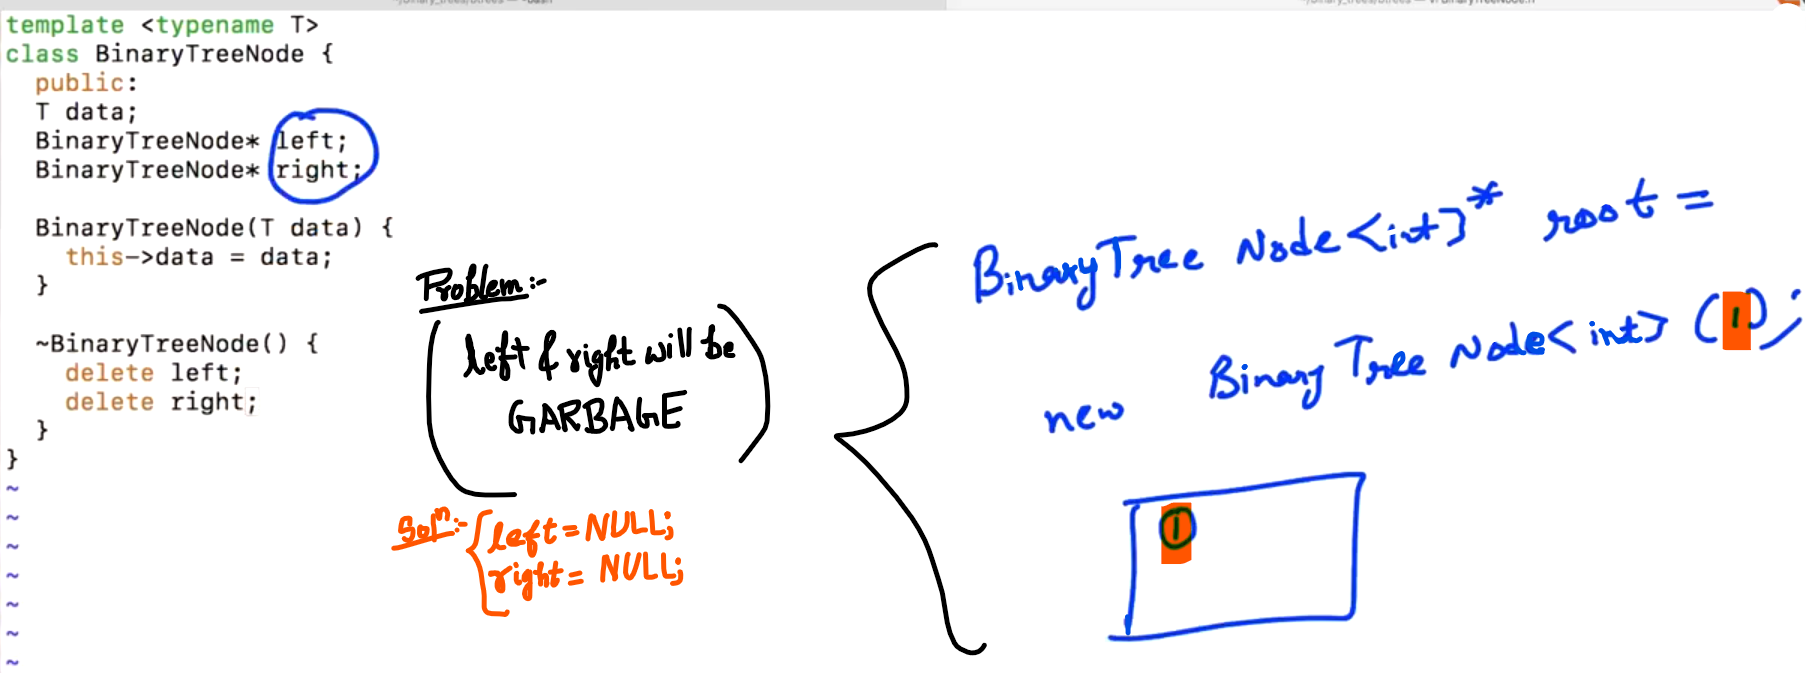 template <typename T>
class BinaryTreeNode {
public:
T data;
BinaryTreeNode* left;
BinaryTreeNode* right;
BinaryTreeNode(T data) {
this->data = data;
}
~BinaryTreeNode() {
delete left;
delete right;
}
}
~
~
~
~
~
~
~
Problem:-
left & right will be
GARBAGE
Soln:- left = NULL;
right = NULL;
BinaryTree Node<int>* root =
new Binary Tree Node<int> (1);
1